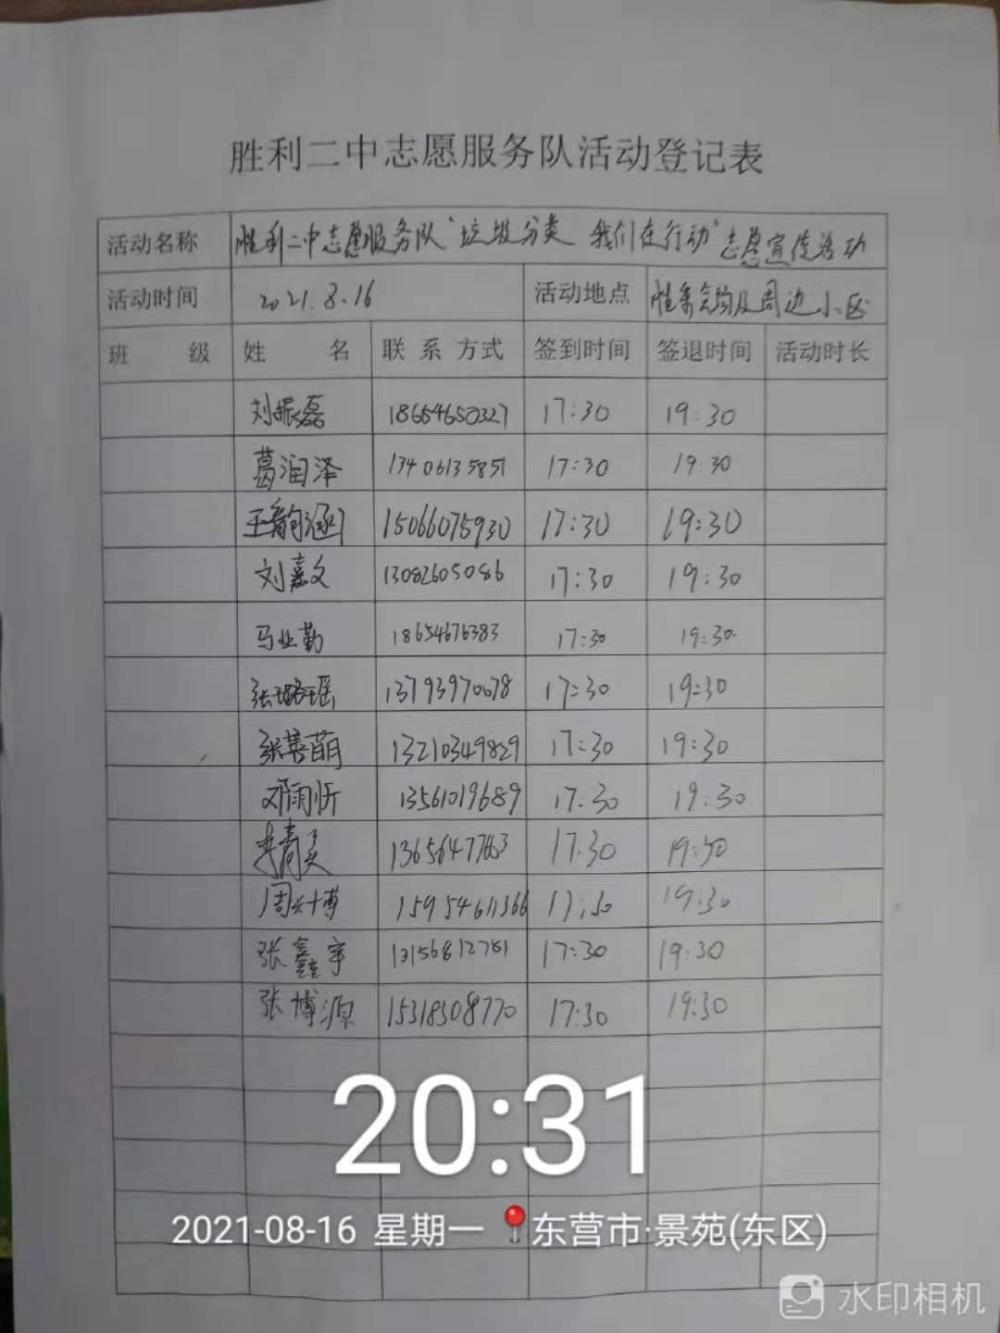 胜利二中志愿服务队活动登记表
活动名称 胜利二中志愿服务队"垃圾分类 我们在行动"志愿宣传活动
活动时间 2021.8.16 活动地点 及周边小区
班 级 姓 名 联系方式 签到时间 签退时间 活动时长
刘振磊 18654650327 17:30 19:30
葛润泽 17406135851 17:30 19:30
王韵涵 15066075930 17:30 19:30
刘嘉文 13082605086 17:30 19:30
马业勤 18654676383 17:30 19:30
张璐瑶 13793970078 17:30 19:30
张善萌 13210349829 17:30 19:30
邓雨忻 13561019689 17:30 19:30
17:30 19:30
周 博 15954611366 17:30 19:30
张鑫宇 13156812781 17:30 19:30
张博源 15318308770 17:30 19:30
20:31
2021-08-16 星期一 东营市·景苑(东区)
水印相机